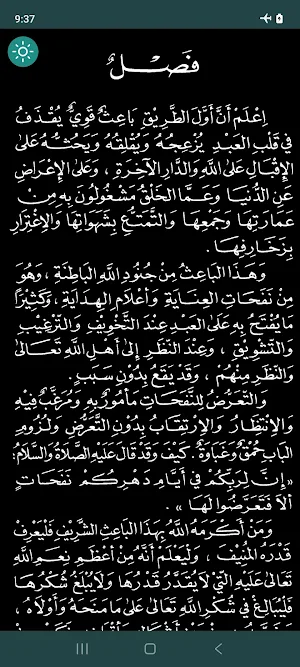 9:37
فَصْلٌ
اِعْلَمْ أَنَّ أَوَّلَ الطَّرِيْقِ بَاعِثٌ قَوِيٌّ يُقْذَفُ
فِي قَلْبِ الْعَبْدِ يُزْعِجُهُ وَيُقْلِقُهُ وَيَحُثُّهُ عَلَى
الإِقْبَالِ عَلَى اللَّهِ وَالدَّارِ الآخِرَةِ ، وَعَلَى الإِعْرَاضِ
عَنِ الدُّنْيَا وَعَمَّا الْخَلْقُ مَشْغُولُونَ بِهِ مِنْ
عَمَارَتِهَا وَجَمْعِهَا وَالتَّمَتُّعِ بِشَهَوَاتِهَا وَالاِغْتِرَارِ
بِزَخَارِفِهَا .
وَهَذَا الْبَاعِثُ مِنْ جُنُودِ اللَّهِ الْبَاطِنَةِ ، وَهُوَ
مِنْ نَفَحَاتِ الْعِنَايَةِ وَأَعْلَامِ الْهِدَايَةِ ، وَكَثِيْرًا
مَا يُفْتَحُ بِهِ عَلَى الْعَبْدِ عِنْدَ التَّخْوِيْفِ وَالتَّرْغِيْبِ
وَالتَّشْوِيْقِ ، وَعِنْدَ النَّظَرِ إِلَى أَهْلِ اللَّهِ تَعَالَى
وَالنَّظَرِ مِنْهُمْ ، وَقَدْ يَقَعُ بِدُونِ سَبَبٍ .
وَالتَّعَرُّضُ لِلنَّفَحَاتِ مَأْمُورٌ بِهِ وَمُرَغَّبٌ فِيْهِ
وَالاِنْتِظَارُ وَالاِرْتِقَابُ بِدُونِ التَّعَرُّضِ وَلُزُومِ
الْبَابِ حُمْقٌ وَغَبَاوَةٌ . كَيْفَ وَقَدْ قَالَ عَلَيْهِ الصَّلَاةُ وَالسَّلَامُ:
« إِنَّ لِرَبِّكُمْ فِي أَيَّامِ دَهْرِكُمْ نَفَحَاتٍ
أَلَا فَتَعَرَّضُوا لَهَا » .
وَمَنْ أَكْرَمَهُ اللَّهُ بِهَذَا الْبَاعِثِ الشَّرِيْفِ فَلْيَعْرِفْ
قَدْرَهُ الْمُنِيْفَ ، وَلْيَعْلَمْ أَنَّهُ مِنْ أَعْظَمِ نِعَمِ اللَّهِ
تَعَالَى عَلَيْهِ الَّتِي لَا يُقْدَرُ قَدْرُهَا وَلَا يُبْلَغُ شُكْرُهَا
فَلْيُبَالِغْ فِي شُكْرِ اللَّهِ تَعَالَى عَلَى مَا مَنَحَهُ وَأَوْلَاهُ ،